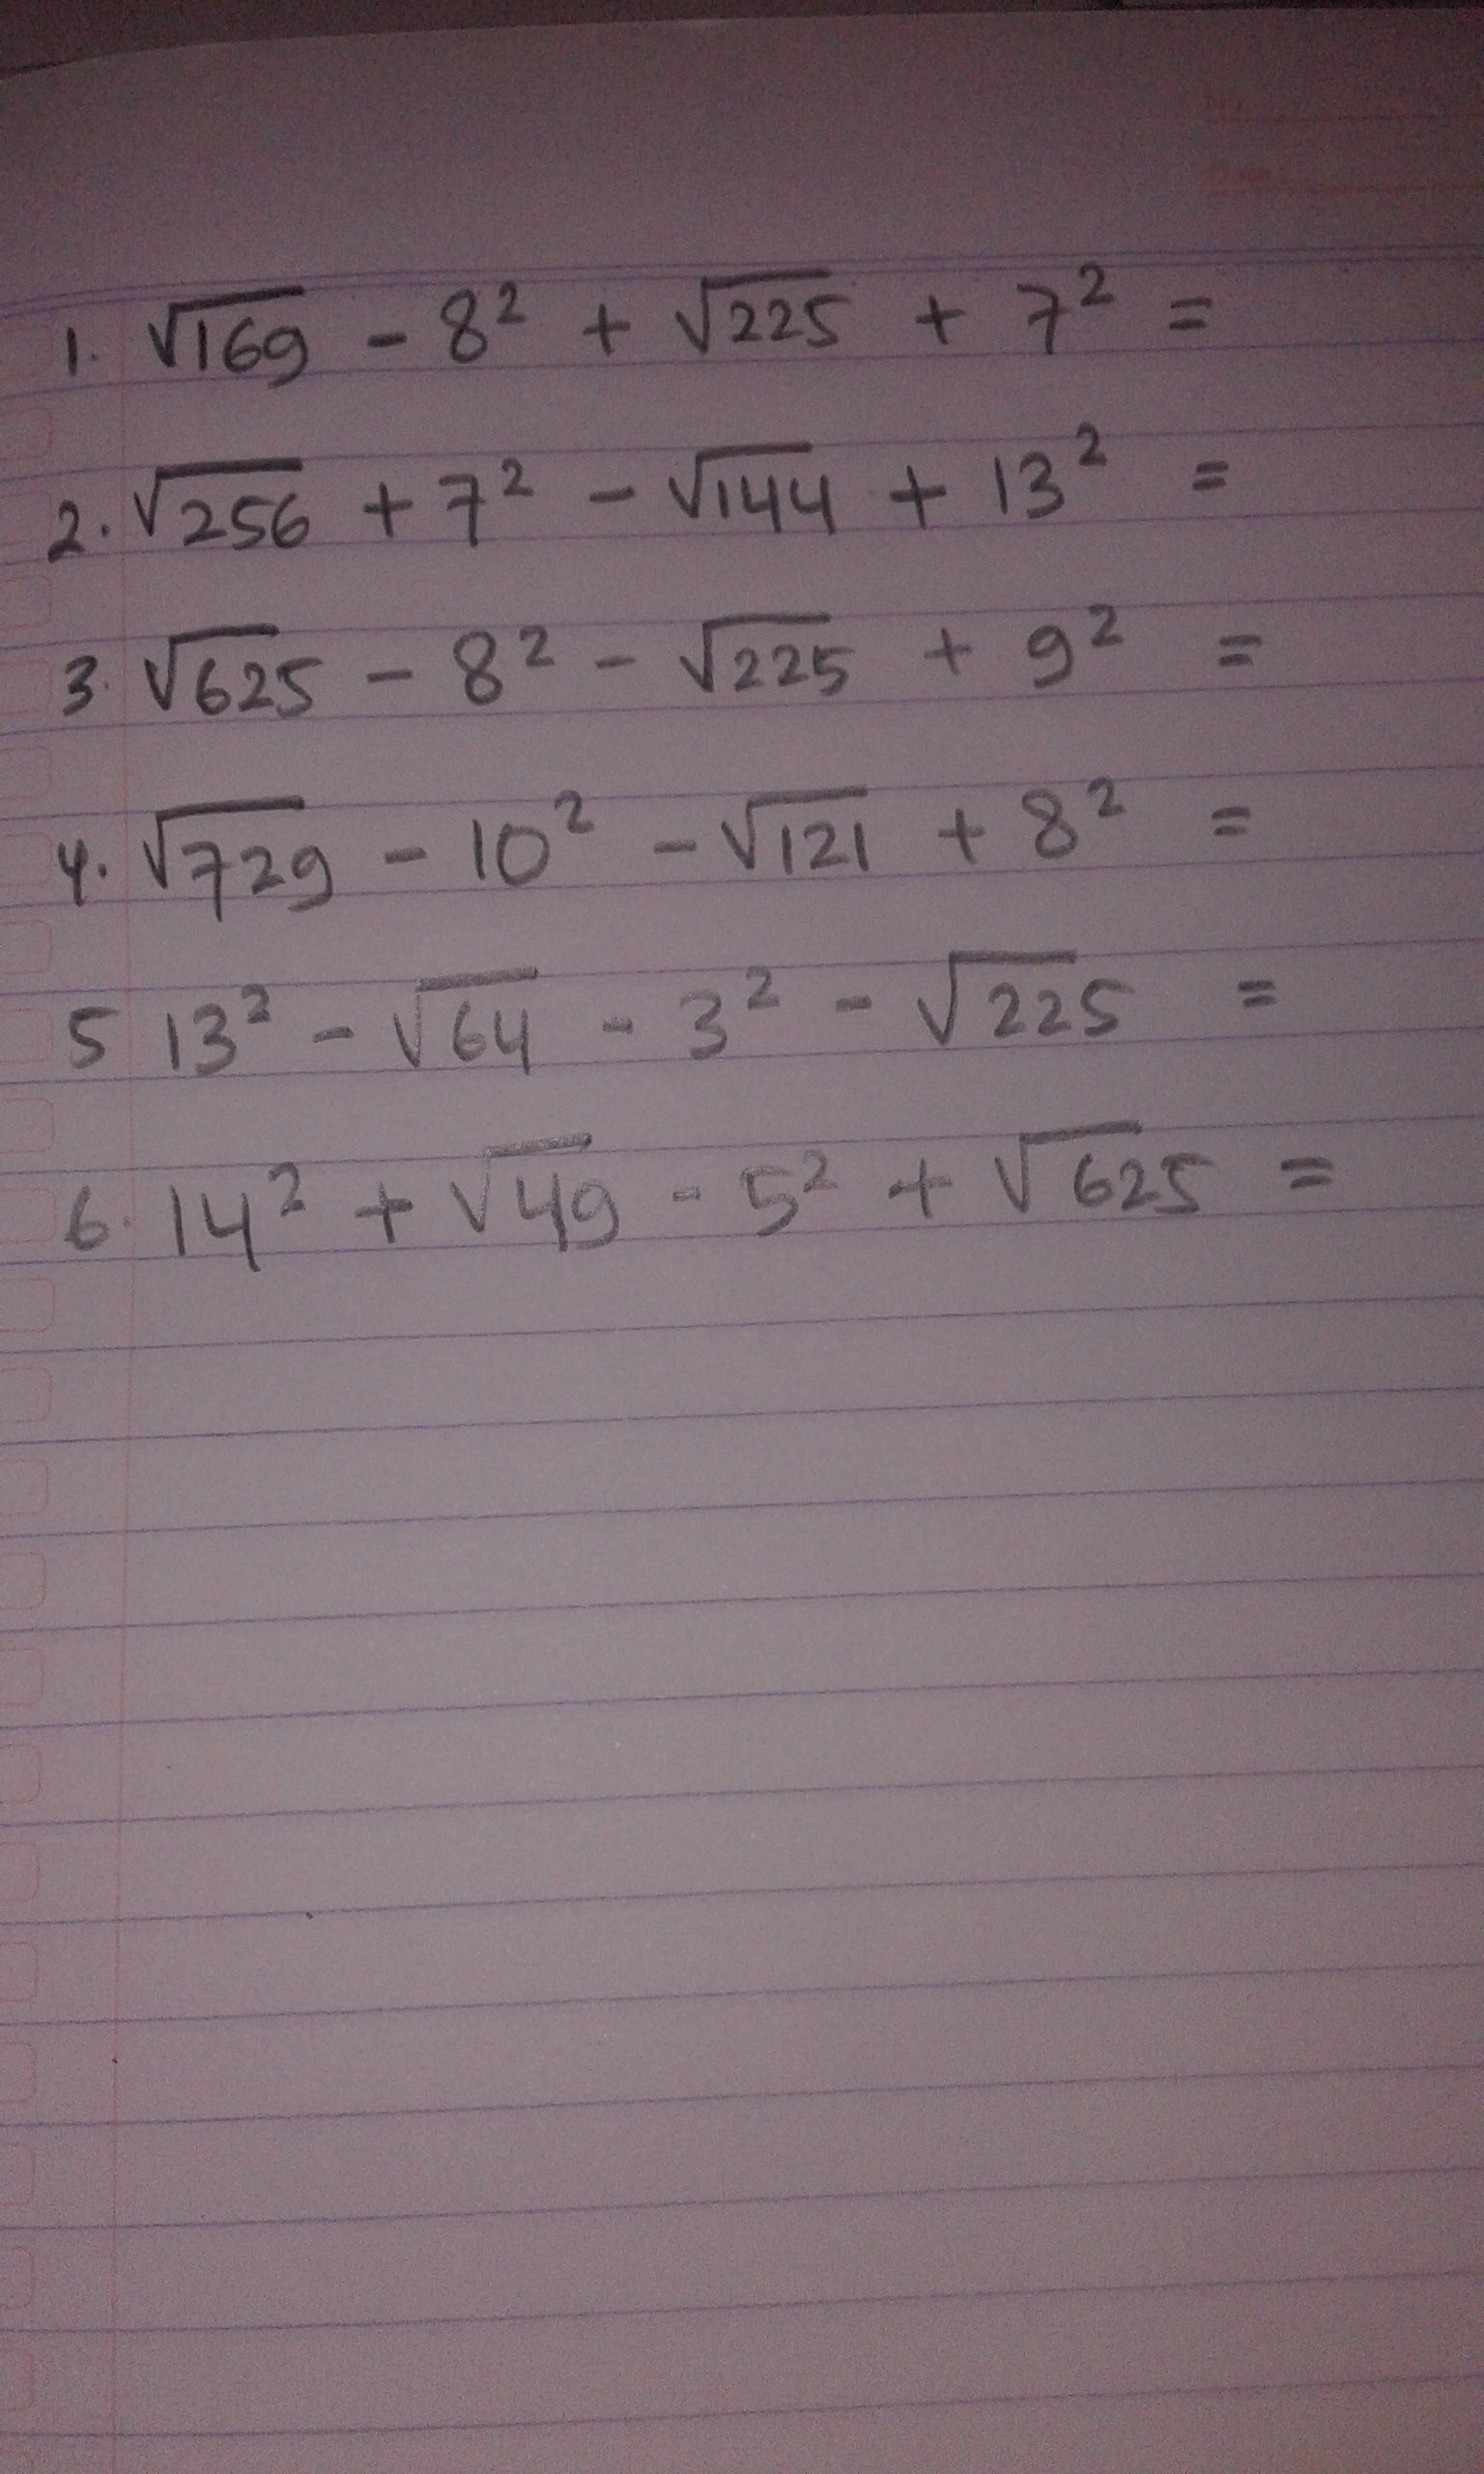 1. √169 - 8² + √225 + 7² =
2. √256 + 7² - √144 + 13² =
3. √625 - 8² - √225 + 9² =
4. √729 - 10² - √121 + 8² =
5 13² - √64 - 3² - √225 =
6. 14² + √49 - 5² + √625 =